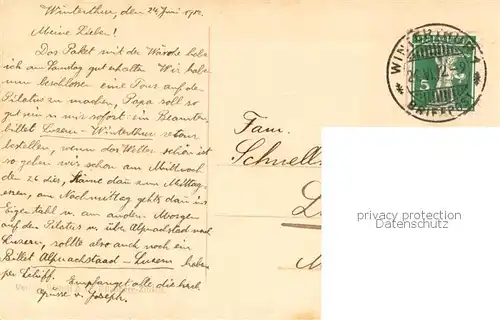 Winterthur, den 24 Juni 1912.
Meine Lieben!
Das Paket mit der Wäsche habe
ich am Samstag gut erhalten. Wir haben
nun beschlossen eine Tour auf den
Pilatus zu machen, Papa soll so
gut sein u mir sofort ein Beamten-
billet Luzern-Winterthur retour
bestellen, wenn das Wetter schön ist
so gehen wir schon am Mittwoch
den 26 dies, käme dann zum Mittag-
essen, am Nachmittag gehts dann ins
Eigenthal u am andern Morgen
auf den Pilatus u. über Alpnachstad nach
Luzern, sollte also auch noch ein
Billet Alpnachstaad - Luzern haben
per Schiff. Empfanget alle die herzl
Grüsse v. Joseph.
Fam.
Schnell
WINTERTHUR
BRIEFEXP.
5
privacy protection
Datenschutz